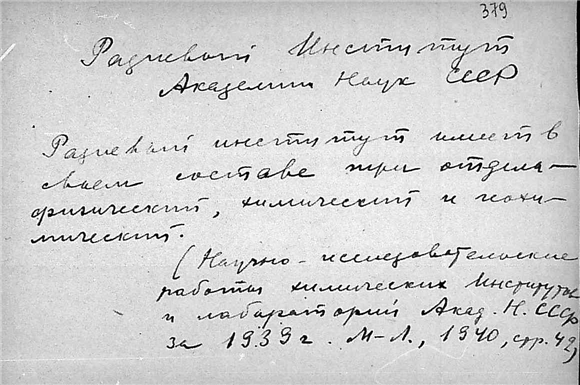 379
Радиевый Институт
Академии Наук СССР
Радиевый институт имеет в
своем составе три отдела-
физический, химический и геохи-
мический.
(Научно-исследовательские
работы химических Институтов
и лабараторий Акад. Н. СССР
за 1939 г. М-Л., 1940, стр. 42)